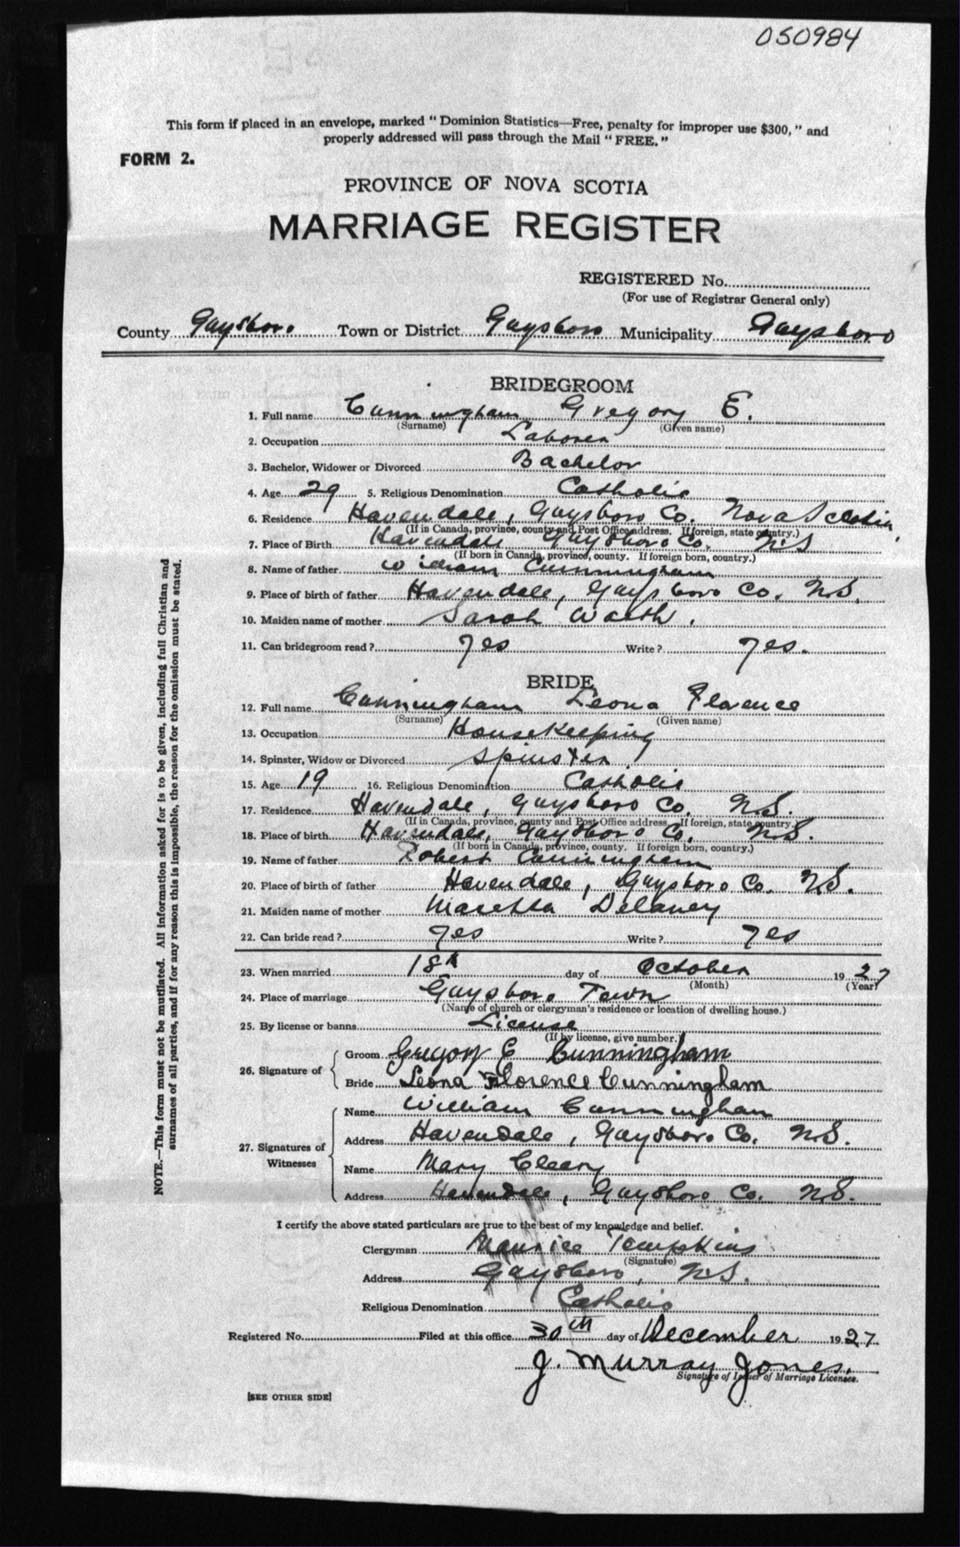 050984
This form if placed in an envelope, marked "Dominion Statistics—Free, penalty for improper use $300," and
properly addressed will pass through the Mail "FREE."
FORM 2.
PROVINCE OF NOVA SCOTIA
MARRIAGE REGISTER
REGISTERED No.
(For use of Registrar General only)
County Guysboro Town or District Guysboro Municipality Guysboro
BRIDEGROOM
1. Full name Cunningham Gregory E.
(Surname) (Given name)
2. Occupation Laborer
3. Bachelor, Widower or Divorced Bachelor
4. Age 29 5. Religious Denomination Catholic
6. Residence Havendale, Guysboro Co. Nova Scotia
(If in Canada, province, county and Post Office address. If foreign, state country.)
7. Place of Birth Havendale Guysboro Co. NS
(If born in Canada, province, county. If foreign born, country.)
8. Name of father William Cunningham
9. Place of birth of father Havendale, Guysboro Co. N.S.
10. Maiden name of mother Sarah
11. Can bridegroom read? yes Write? yes.
BRIDE
12. Full name Cunningham Leona Florence
(Surname) (Given name)
13. Occupation Housekeeping
14. Spinster, Widow or Divorced Spinster
15. Age 19 16. Religious Denomination Catholic
17. Residence Havendale, Guysboro Co. N.S.
(If in Canada, province, county and Post Office address. If foreign, state country.)
18. Place of birth Havendale, Guysboro Co. N.S.
(If born in Canada, province, county. If foreign born, country.)
19. Name of father Robert Cunningham
20. Place of birth of father Havendale, Guysboro Co. N.S.
21. Maiden name of mother Maretta Delaney
22. Can bride read? yes Write? yes
23. When married 18th day of October 1927
(Month) (Year)
24. Place of marriage Guysboro Town
(Name of church or clergyman's residence or location of dwelling house.)
25. By license or banns License
(If by license, give number.)
26. Signature of
Groom Gregory E Cunningham
Bride Leona Florence Cunningham
27. Signatures of Witnesses
Name William Cunningham
Address Havendale, Guysboro Co. N.S.
Name Mary Cleary
Address Havendale, Guysboro Co. N.S.
I certify the above stated particulars are true to the best of my knowledge and belief.
Clergyman Maurice Tompkins
(Signature)
Address Guysboro, N.S.
Religious Denomination Catholic
Registered No. Filed at this office 30th day of December 1927.
J. Murray Jones.
Signature of Issuer of Marriage Licenses.
[SEE OTHER SIDE]
NOTE.—This form must not be mutilated. All information asked for is to be given, including full Christian and
surnames of all parties, and if for any reason this is impossible, the reason for the omission must be stated.